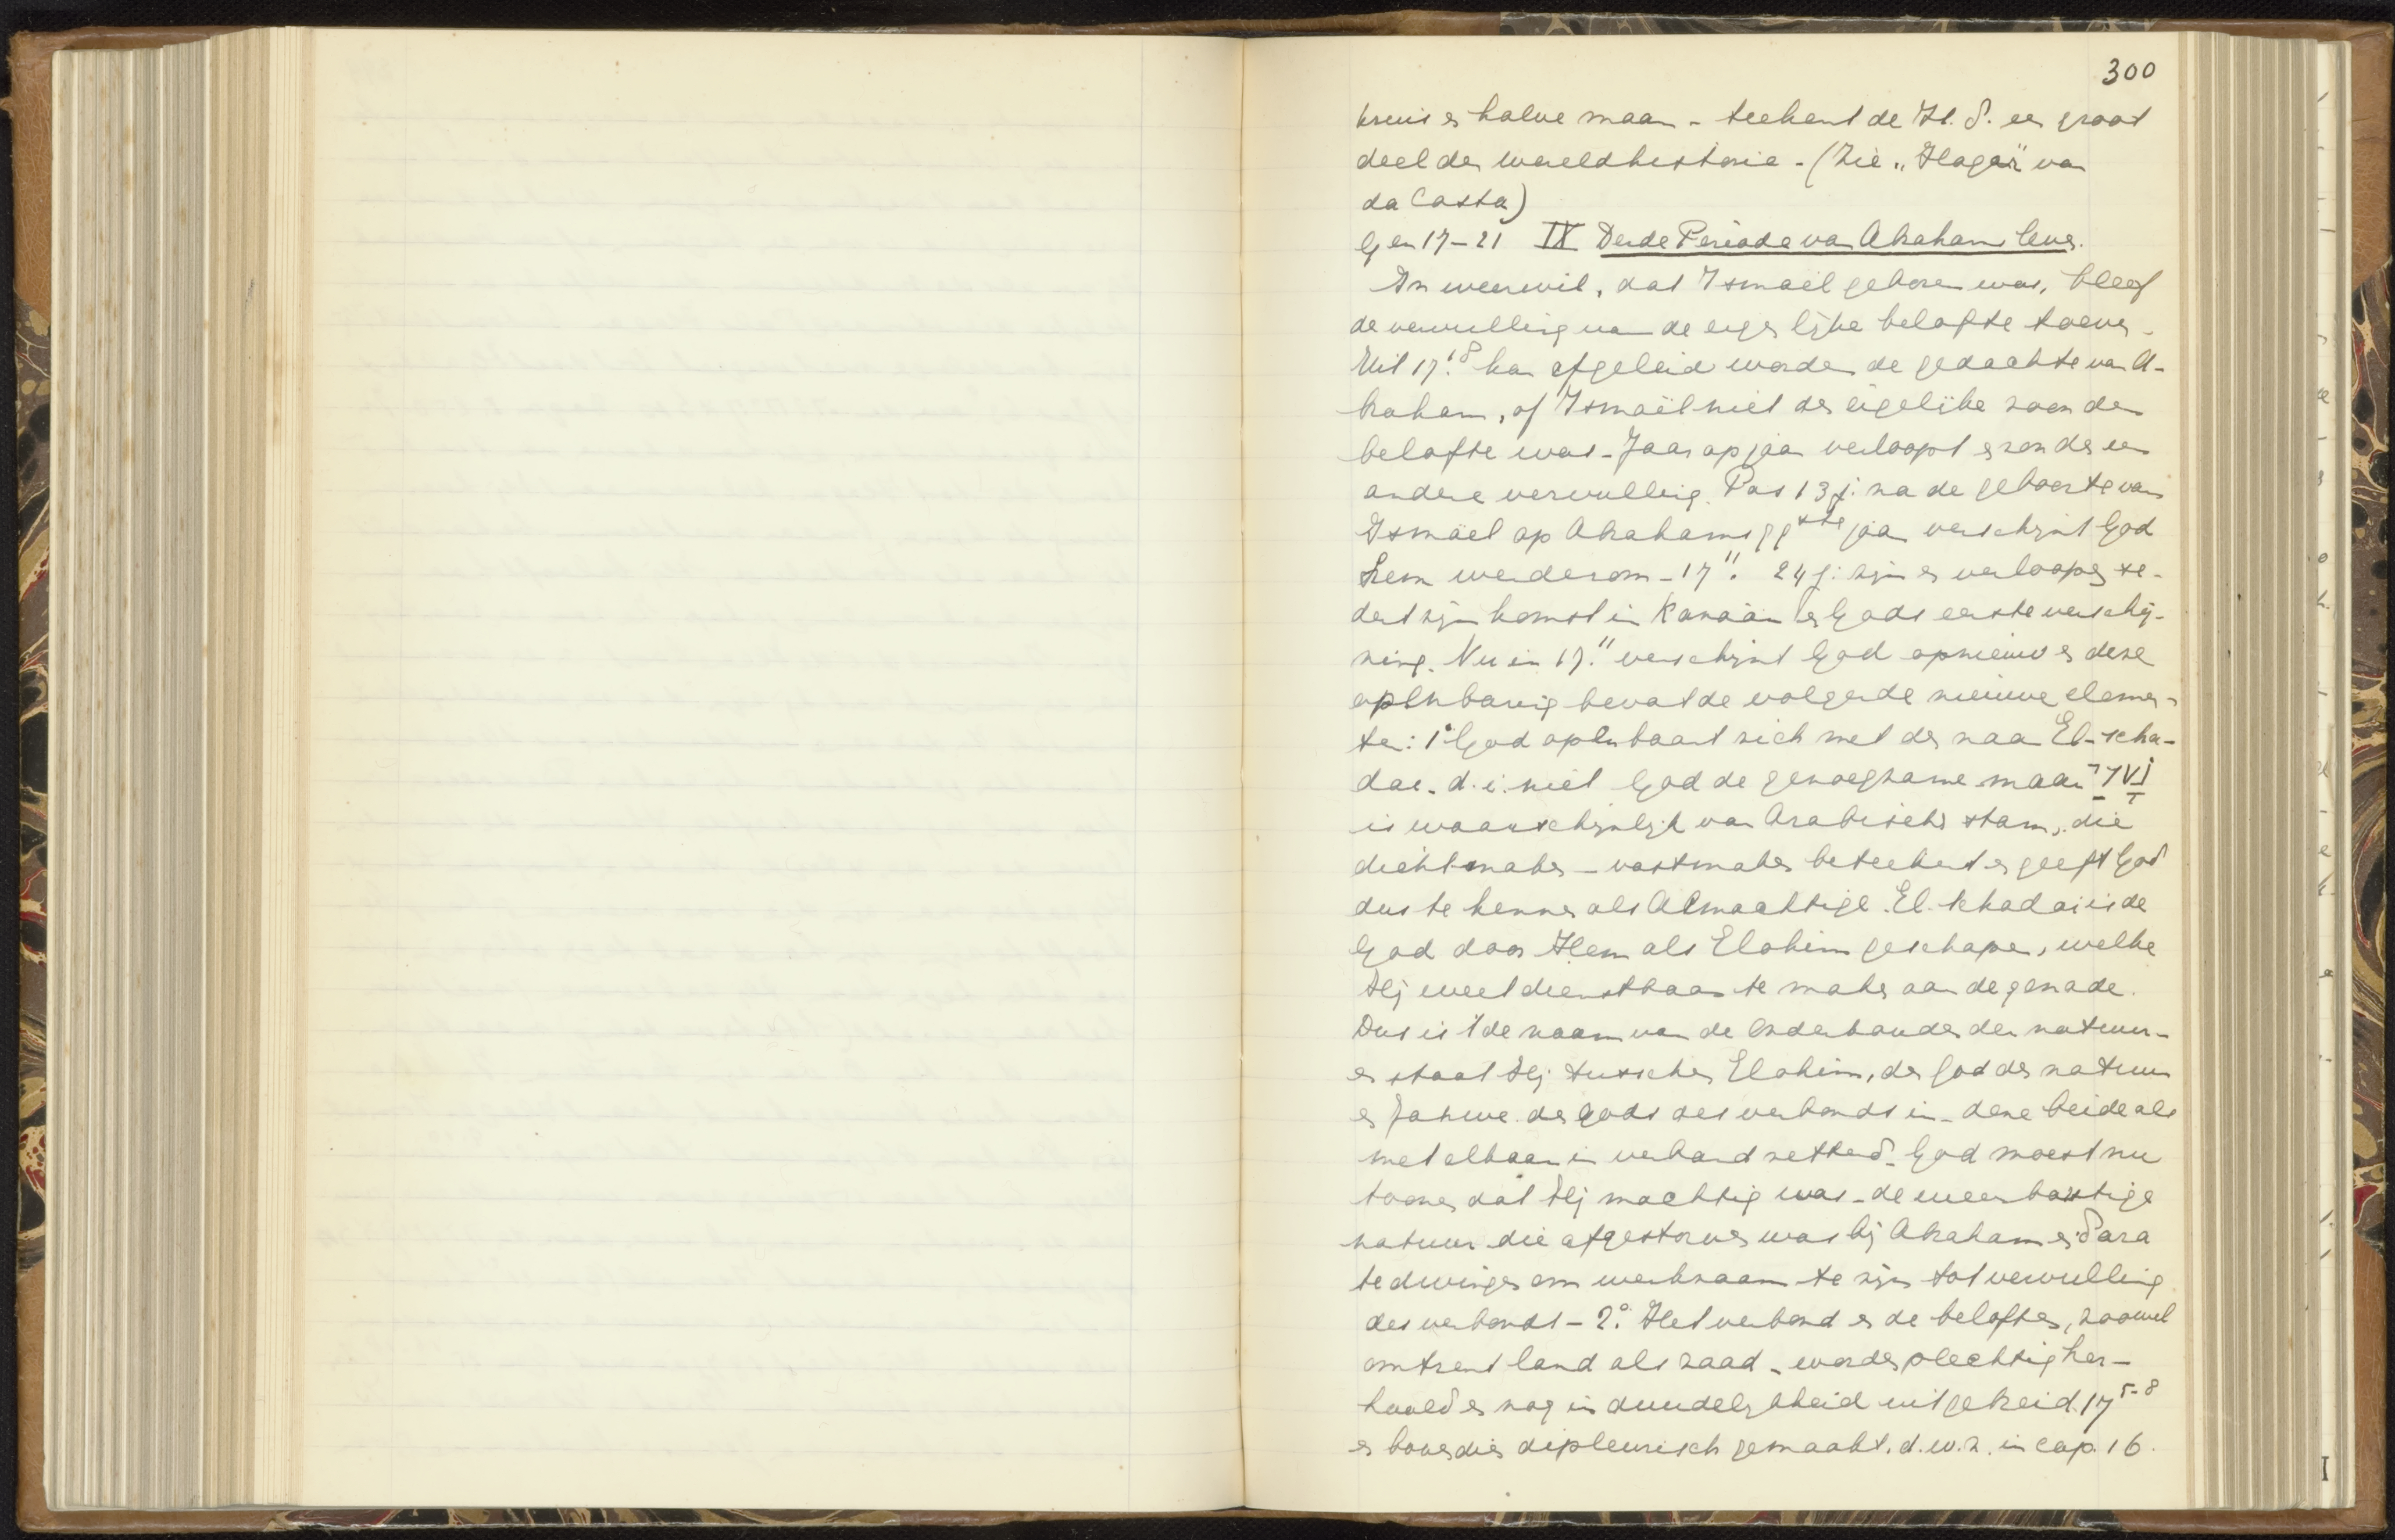 300
kruis en halve maan - teekent de H. S. een groot
deel der wereldhistorie - (Zie „Hagar" van
da Costa)
Gen 17-21 IX Derde Periode van Abrahams leven.
In weerwil, dat Ismaël geboren was, bleef
de vervulling van de eigenlijke belofte toeven -
Uit 17:18 kan afgeleid worden de gedachte van A-
braham, of Ismaël niet de eigenlijke zoon der
belofte was - Jaar op jaar verloopt er zonder een
andere vervulling. Pas 13 j. na de geboorte van
Ismaël op Abrahams 99ste jaar verschijnt God
hem wederom - 17:1. 24 j. zijn er verloopen se-
dert zijn komst in Kanaän en Gods eerste verschij-
ning. Nu in 17:1 verschijnt God opnieuw en deze
openbaring bevat de volgende nieuwe elemen-
ten: 1° God openbaart zich met den naam El-scha-
dai. d.i. niet God de genoegzame maar שַׁדַּי
is waarschijnlijk van Arabische stam, die
dichtmaken - vastmaken beteekent en geeft God
dus te kennen als Almachtige. El-schadai is de
God door Hem als Elohim geschapen, welke
Hij weet dienstbaar te maken aan de genade.
Dus is 't de naam van de Onderhouder der natuur -
en staat Hij tusschen Elohim, de God der natuur
en Jahwe de Gods des verbonds in - deze beide als
met elkaar in verband zettend. God moest nu
toonen dat Hij machtig was - de weerbarstige
natuur die afgestorven was bij Abraham en Sara
te dwingen om werkzaam te zijn tot vervulling
des verbonds - 2° Het verbond en de beloften, zoowel
omtrent land als zaad - worden plechtig her-
haald en nog in duidelijkheid uitgebreid. 17 5-8
en bovendien dipleurisch gemaakt. d.w.z. in cap. 16